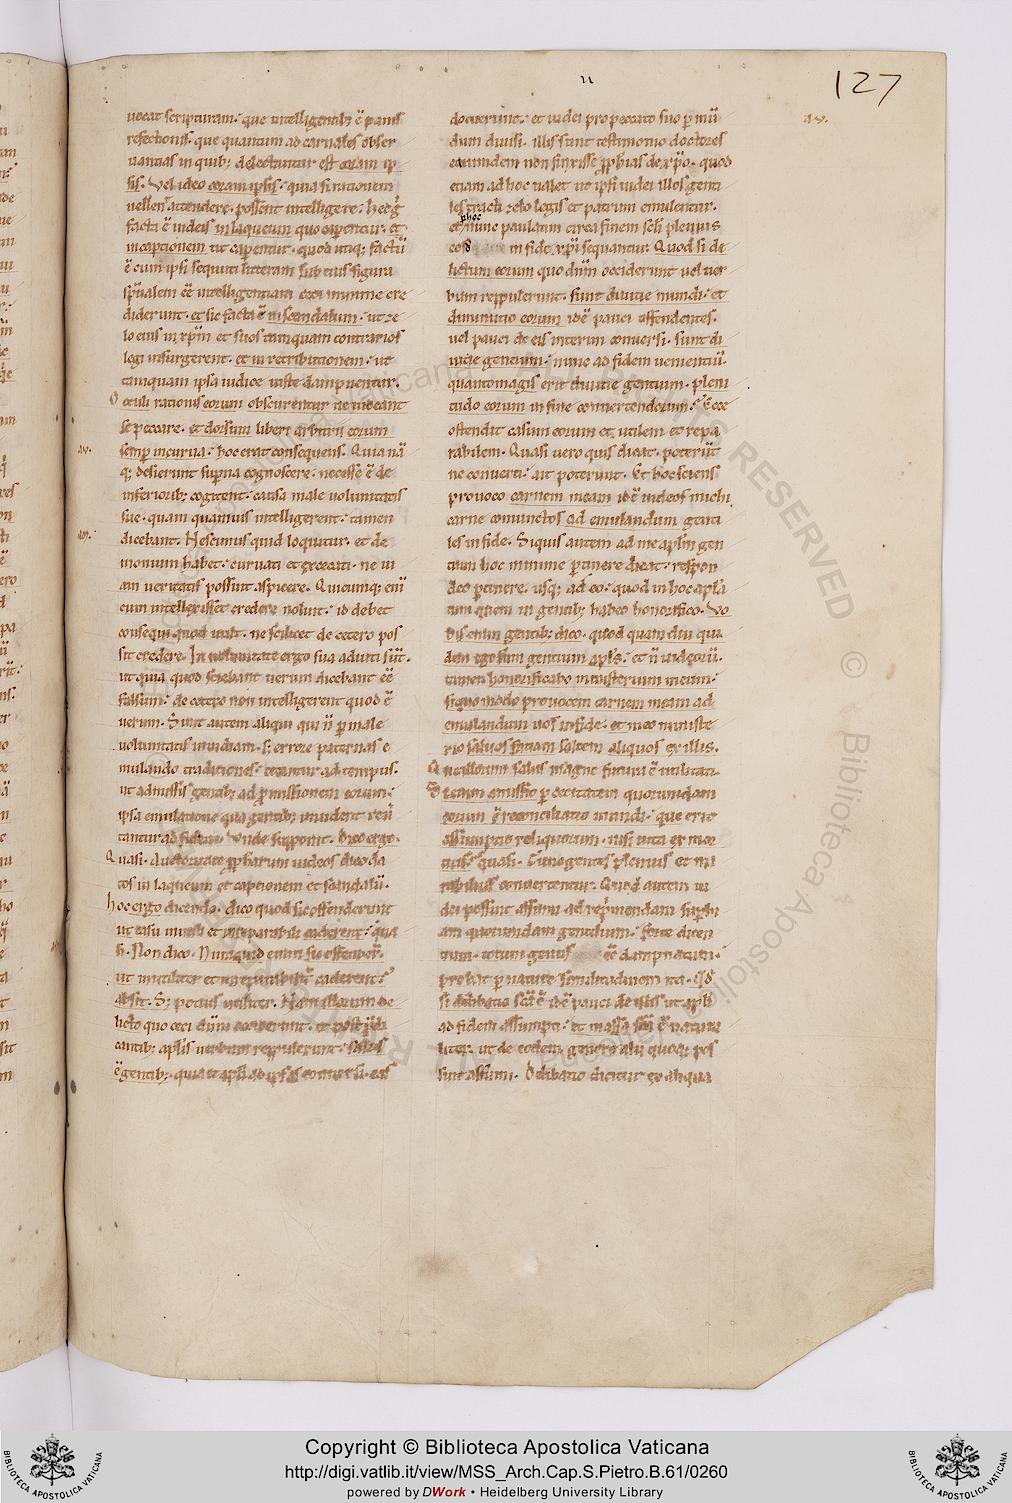 127
uocat scripturam. que intelligentib; ē panis
refectionis. que quantum ad carnales obser
uantias in quib; delectantur est coram ip
sis. Vel ideo coram ipsis. quia si rationem
uellent attendere. possent intelligere. hec g̃
facta ē iudeis in laqueum quo caperentur. et
in captionem ut caperentur. quod utiq; factū
ē cum ipsi sequuti litteram sub eius figura
sp̄ualem eē intelligentiam ceci minime cre
diderunt. et sic facta ē in scandalum. ut ze
lo eius in xp̄m et suos tamquam contrarios
legi insurgerent. et in retributionem. ut
tamquam ipsa iudice iuste dampnentur.
Oculi rationis eorum obscurentur ne uideant
se peccare. et dorsum liberi arbitrii eorum
semp incurua. hoc erat consequens. Quia nā
q; desierunt sup̄na cognoscere. necesse ē de
inferiorib; cogitent. causa male uoluntatis
sue. quam quamuis intelligerent. tamen
dicebant. Nescimus quid loquitur. et de
monium habet. curuati et excecati. ne ui
am ueritatis possint aspicere. Quicumq; enī
cum intellexisset credere noluit. id debet
consequi quod uult. ne scilicet de cetero pos
sit credere. In uoluntate ergo sua aduti sūt.
ut quia quod sciebant uerum dicebant eē
falsum. de cetero non intelligerent quod ē
uerum. Sunt autem aliqui qui n̄ p male
uoluntatis inuidiam. s; errore paternas e
mulando traditiones. cecantur ad tempus.
ut admissis gentib; ad p̄missionem eorum.
ipsa emulatione qua gentib; inuident
Quasi. Auctoritate pp̄harum iudeos dico da
tos in laqueum et captionem et scandalū.
hoc ergo dicendo. dico quod sic offenderunt
ut casu inutili et irreparabili caderent.
Non dico. Numquid enim sic offenderūt
ut inutiliter et irreparabilit̄ caderent.
absit. S; potius utiliter. Nam illorum de
licto quo ceci dn̄m occiderunt. et postp̄di
cantib; apl̄is uerbum reppulerunt. salus
ē gentib;. quia et apl̄i ab ipsis conuersi eas
docuerunt. et iudei pro peccato suo p mū
dum diuisi. illis sunt testimonio doctores
eorumdem non finxisse pp̄hias de xp̄o. quod
etiam ad hoc ualet ut ipsi iudei illos genti
les tracti zelo legis et patrum emulentur.
phoc
et nunc paulatim circa finem sc̄li plenius
eos in fide xp̄i sequantur. Quod si de
lictum eorum quo dn̄m occiderunt uel uer
bum reppulerunt. sunt diuitie mundi. et
diminutio eorum id ē pauci offendentes.
uel pauci de eis interim conuersi. sunt di
uitie gentium. nunc ad fidem uenientiū.
quantomagis erit diuitie gentium. pleni
tudo eorum in fine conuertendorum. Ecce
ostendit casum eorum et utilem et repa
rabilem. Quasi uero quis dicat. poterūt
ne conuerti. ait poterunt. Et hoc sciens
prouoco carnem meam id ē iudeos michi
carne coniunctos ad emulandum genti
les in fide. Siquis autem ad me apl̄m gen
tium hoc minime p̄tinere dicat. respon
deo p̄tinere. usq; adeo. quod in hoc apl̄a
tum quem in gentib; habeo honorifico. Vo
bis enim gentib; dico. quod quam diu qui
dem ego sum gentium apl̄s. et n̄ iudeorū.
tamen honorificabo ministerium meum.
siquo modo prouocem carnem meam ad
emulandum uos in fide. et meo ministe
rio saluos faciam saltem aliquos ex illis.
Quia illorum salus magne futura ē utilitati.
Si enim amissio p cecitatem quorumdam
eorum ē reconciliatio mundi. que erit
assumptio reliquorum. nisi uita ex mor
tuis. Quod autem iu
dei possint assumi ad rep̄mendam sup̄bi
am quorumdam gentilium. forte dicen
tium. totum genus eē dampnatum.
probat p nature similitudinem ita. Qd
si delibatio sc̄a ē id ē pauci de istis ut apl̄i
ad fidem assumpti. et massa sc̄a ē natura
liter. ut de eodem genere alii quoq; pos
sint assumi. Delibatio dicitur ex aliqua
Copyright © Biblioteca Apostolica Vaticana
http://digi.vatlib.it/view/MSS_Arch.Cap.S.Pietro.B.61/0260
powered by DWork • Heidelberg University Library
BIBLIOTECA APOSTOLICA VATICANA
BIBLIOTECA APOSTOLICA VATICANA